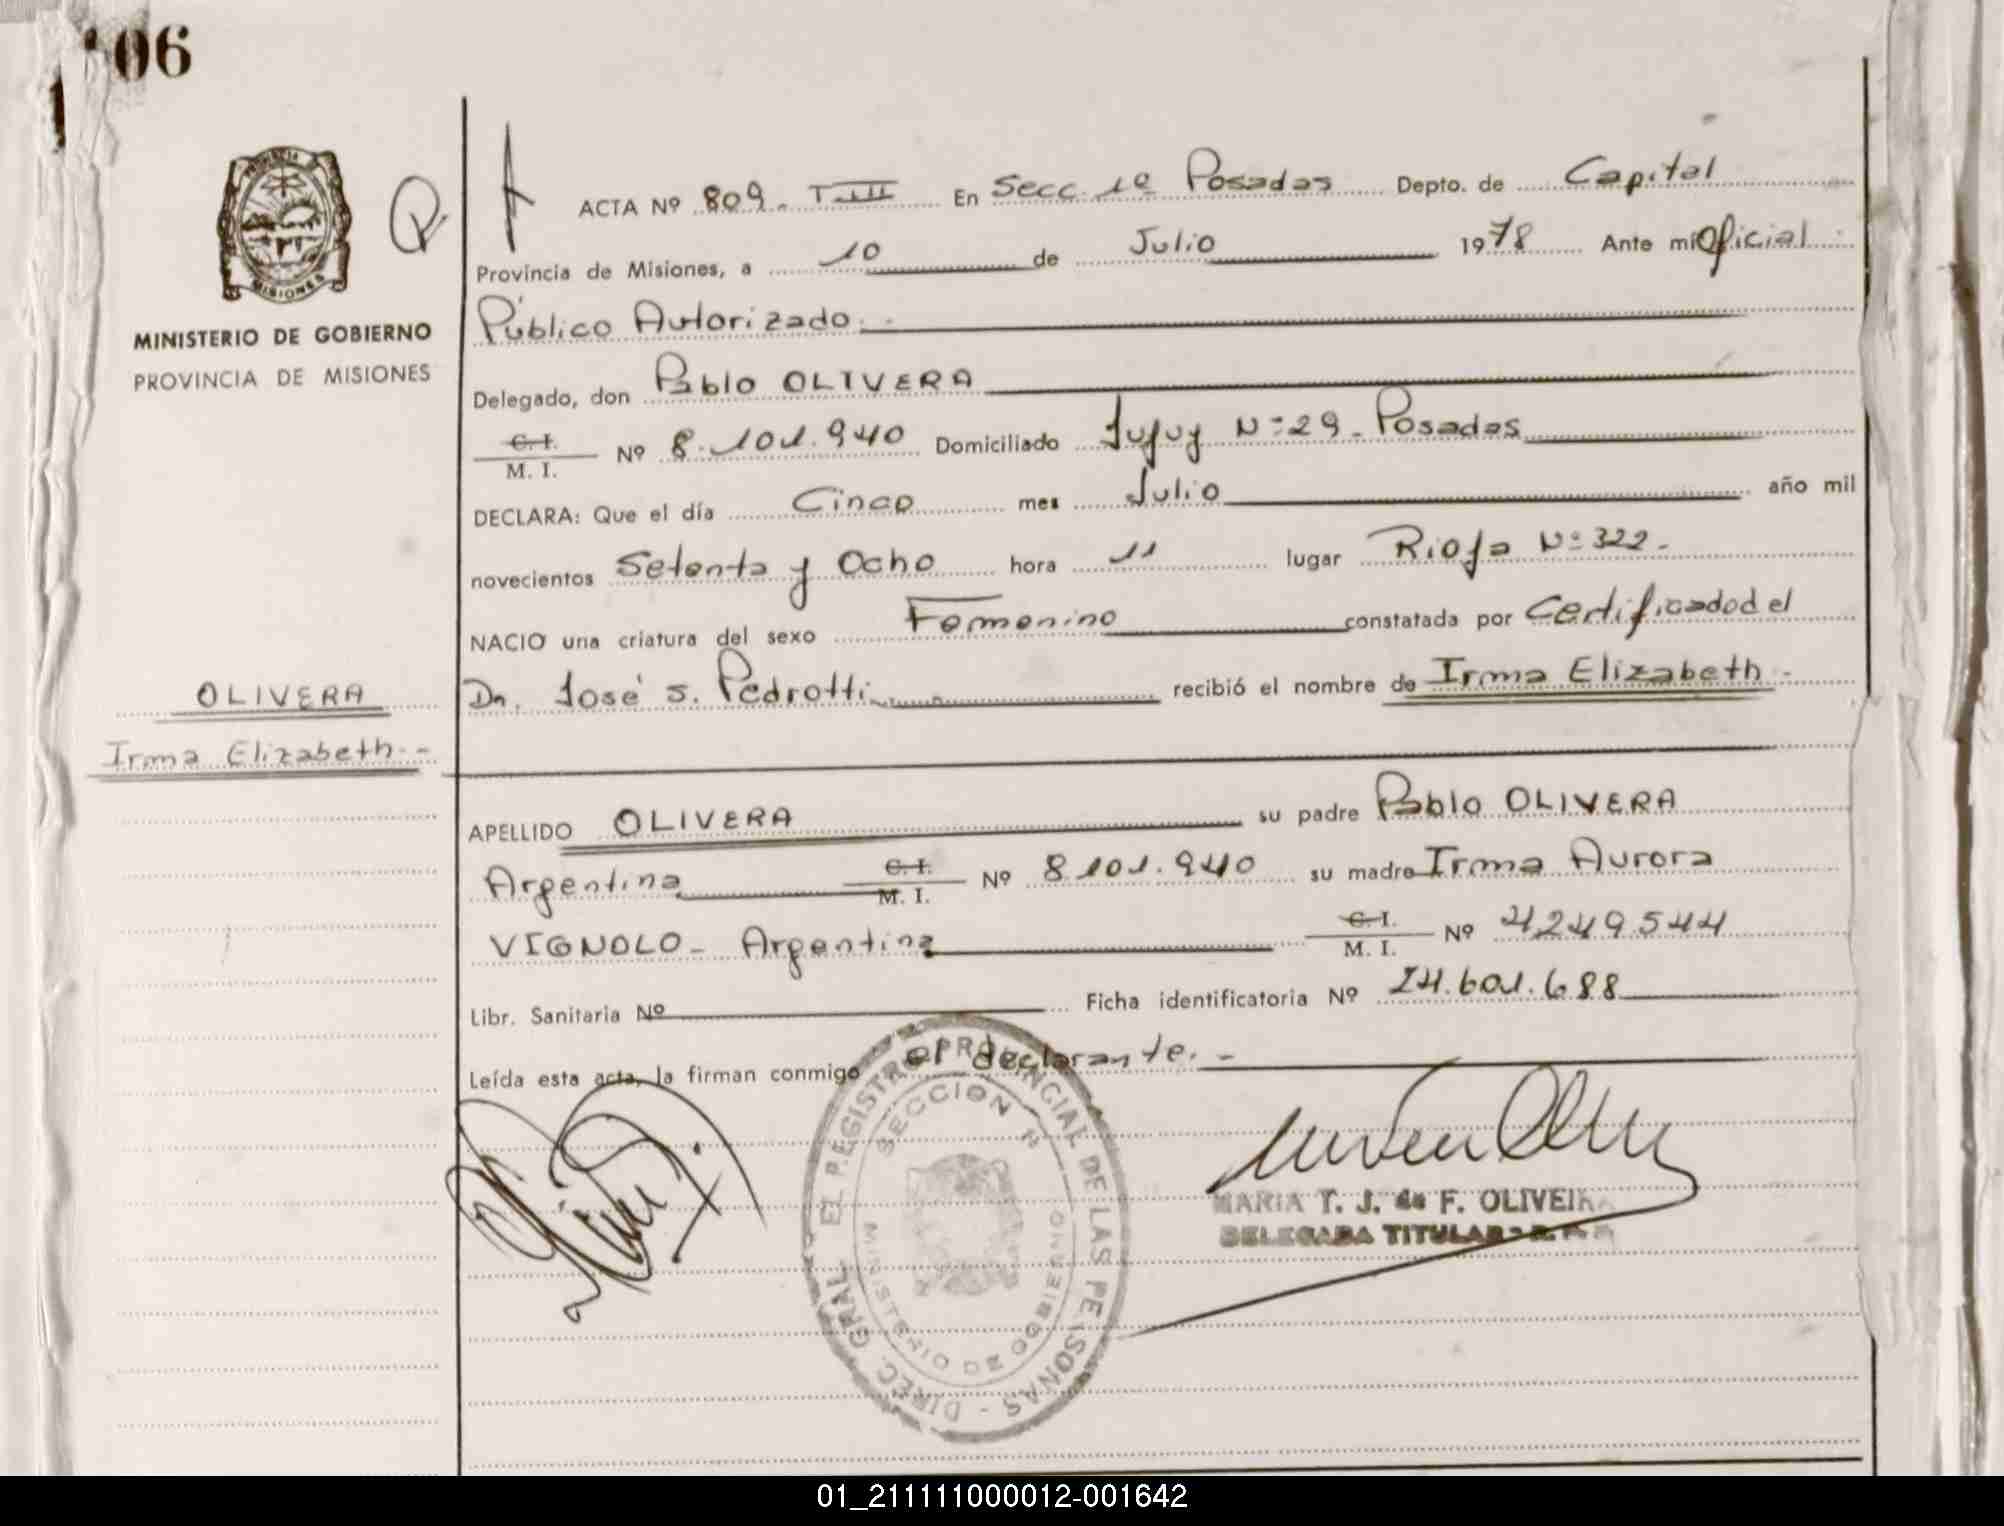 06
PROVINCIA
MISIONES
MINISTERIO DE GOBIERNO
PROVINCIA DE MISIONES
ACTA Nº 809 - T III En Secc. 1º Posadas Depto. de Capital
Provincia de Misiones, a 10 de Julio 1978 Ante mi Oficial
Público Autorizado.-
Delegado, don Pablo OLIVERA
C. I. / M. I. Nº 8.101.940 Domiciliado Jujuy Nº 29 - Posadas
DECLARA: Que el día Cinco mes Julio año mil
novecientos Setenta y Ocho hora 11 lugar Rioja Nº 322.-
NACIO una criatura del sexo Femenino constatada por Certificado del
Dr. José S. Pedrotti recibió el nombre de Irma Elizabeth.-
OLIVERA
Irma Elizabeth.-
APELLIDO OLIVERA su padre Pablo OLIVERA
Argentina C. I. / M. I. Nº 8.101.940 su madre Irma Aurora
VIGNOLO - Argentina C. I. / M. I. Nº 4249544
Libr. Sanitaria Nº Ficha identificatoria Nº 24.601.688
Leída esta acta, la firman conmigo el declarante.-
DIREC. GRAL. EL REGISTRO PROVINCIAL DE LAS PERSONAS -
SECCION
MINISTERIO DE GOBIERNO
MARIA T. J. de F. OLIVEIRA
DELEGADA TITULAR
01_211111000012-001642